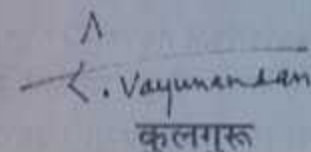 . Vayunandan
कुलगुरू